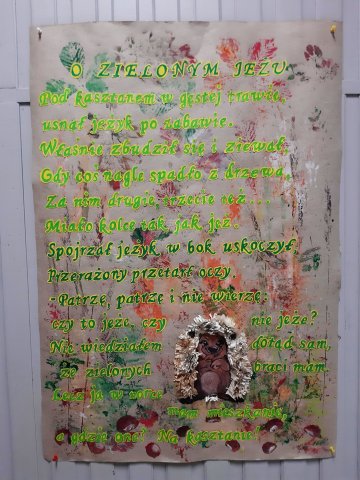 O ZIELONYM JEŻU
Pod kasztanem w gęstej trawie,
usnął jeżyk po zabawie.
Właśnie zbudził się i ziewał
Gdy coś nagle spadło z drzewa.
Za nim drugie, trzecie też....
Miało kolce tak jak jeż.
Spojrzał jeżyk, w bok uskoczył.
Przerażony przetarł oczy.
-Patrzę, patrzę i nie wierzę:
czy to jeże, czy nie jeże?
Nie wiedziałem dotąd sam,
że zielonych braci mam.
Lecz ja w norce
mam mieszkanie,
a gdzie one? Na kasztanie!